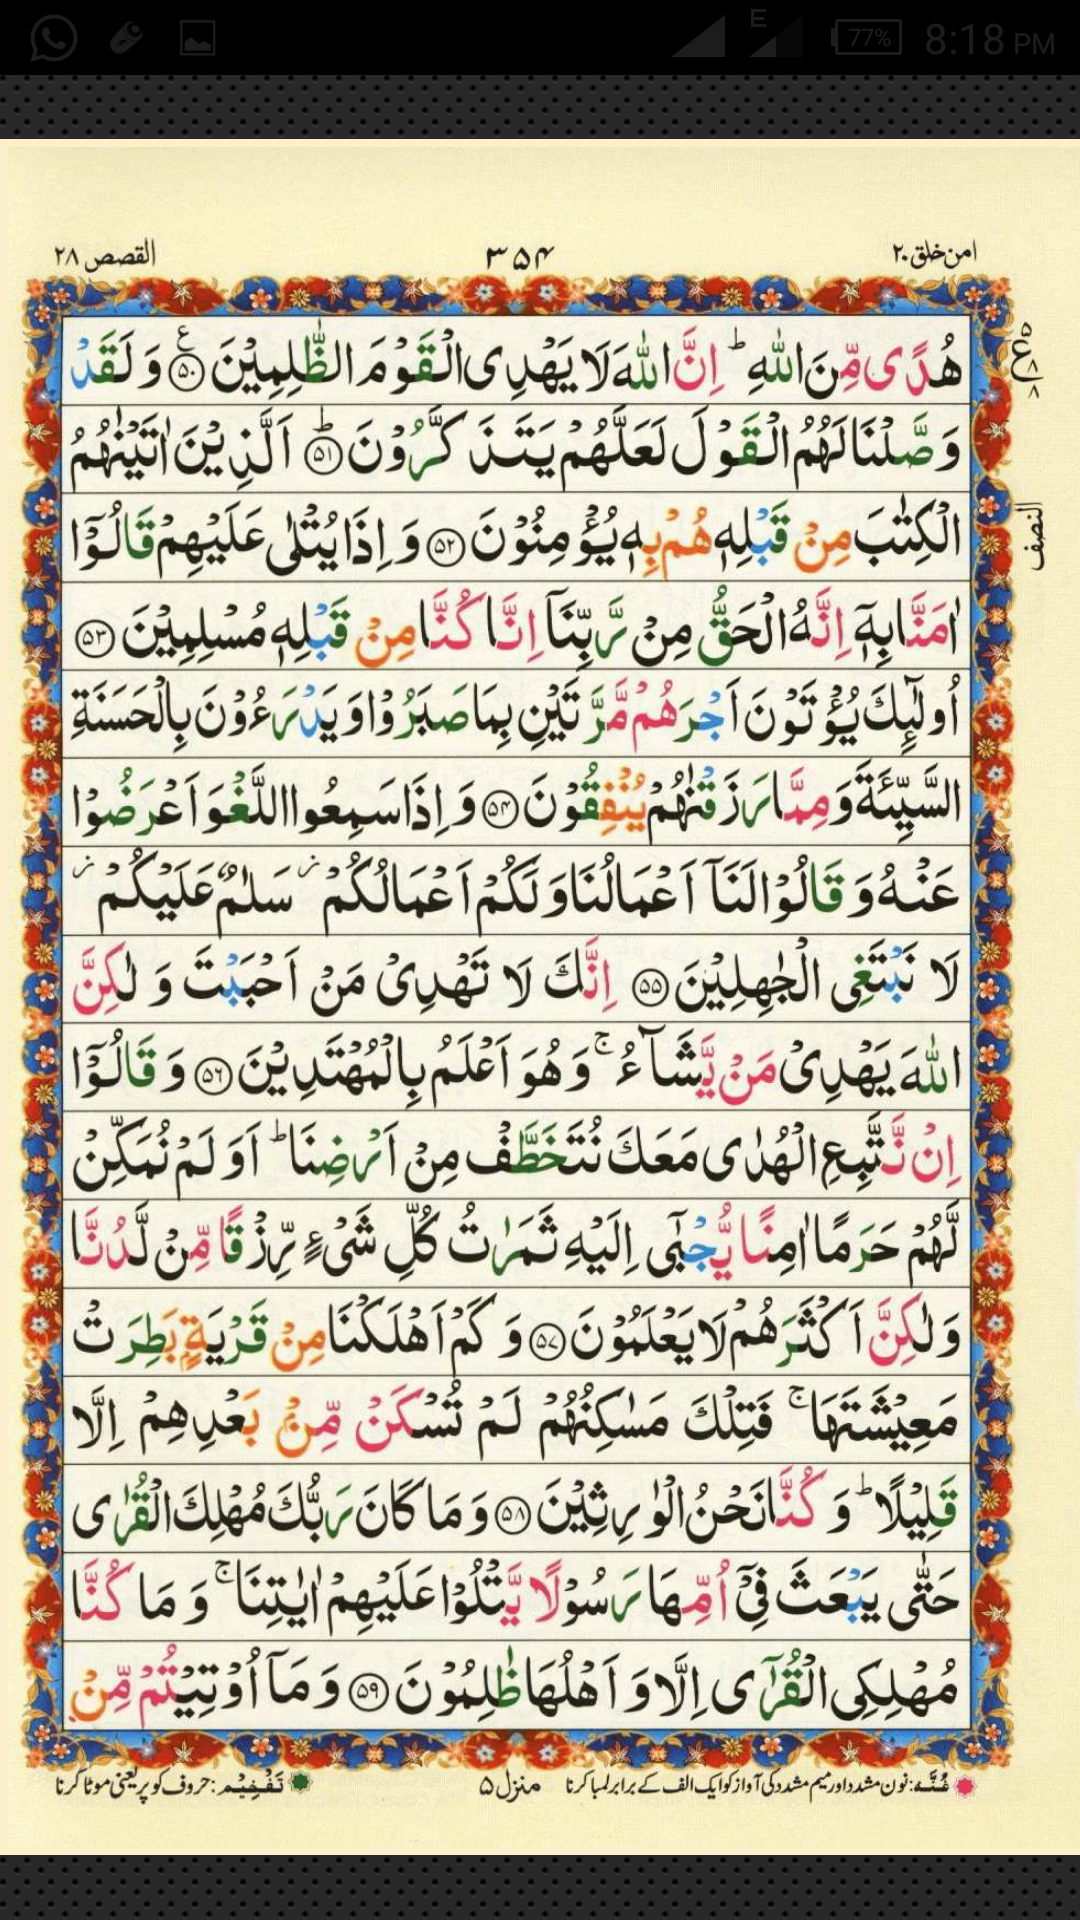 E 77% 8:18 PM
امن خلق ۲۰ ۳۵۴ القصص ۲۸
هُدًى مِّنَ اللّٰهِ ؕ اِنَّ اللّٰهَ لَا يَهْدِى الْقَوْمَ الظّٰلِمِيْنَ ۵۰ ع وَ لَقَدْ
وَصَّلْنَا لَهُمُ الْقَوْلَ لَعَلَّهُمْ يَتَذَكَّرُوْنَ ؕ ۵۱ اَلَّذِيْنَ اٰتَيْنٰهُمُ
النصف
الْكِتٰبَ مِنْ قَبْلِهٖ هُمْ بِهٖ يُؤْمِنُوْنَ ۵۲ وَ اِذَا يُتْلٰى عَلَيْهِمْ قَالُوْۤا
اٰمَنَّا بِهٖۤ اِنَّهُ الْحَقُّ مِنْ رَّبِّنَاۤ اِنَّا كُنَّا مِنْ قَبْلِهٖ مُسْلِمِيْنَ ۵۳
اُولٰٓئِكَ يُؤْتَوْنَ اَجْرَهُمْ مَّرَّتَيْنِ بِمَا صَبَرُوْا وَ يَدْرَءُوْنَ بِالْحَسَنَةِ
السَّيِّئَةَ وَ مِمَّا رَزَقْنٰهُمْ يُنْفِقُوْنَ ۵۴ وَ اِذَا سَمِعُوا اللَّغْوَ اَعْرَضُوْا
عَنْهُ وَ قَالُوْا لَنَاۤ اَعْمَالُنَا وَ لَكُمْ اَعْمَالُكُمْ ز سَلٰمٌ عَلَيْكُمْ ز
لَا نَبْتَغِى الْجٰهِلِيْنَ ۵۵ اِنَّكَ لَا تَهْدِىْ مَنْ اَحْبَبْتَ وَ لٰكِنَّ
اللّٰهَ يَهْدِىْ مَنْ يَّشَآءُ ۚ وَ هُوَ اَعْلَمُ بِالْمُهْتَدِيْنَ ۵۶ وَ قَالُوْۤا
اِنْ نَّتَّبِعِ الْهُدٰى مَعَكَ نُتَخَطَّفْ مِنْ اَرْضِنَا ؕ اَوَ لَمْ نُمَكِّنْ
لَّهُمْ حَرَمًا اٰمِنًا يُّجْبٰٓى اِلَيْهِ ثَمَرٰتُ كُلِّ شَىْءٍ رِّزْقًا مِّنْ لَّدُنَّا
وَ لٰكِنَّ اَكْثَرَهُمْ لَا يَعْلَمُوْنَ ۵۷ وَ كَمْ اَهْلَكْنَا مِنْ قَرْيَةٍ بَطِرَتْ
مَعِيْشَتَهَا ۚ فَتِلْكَ مَسٰكِنُهُمْ لَمْ تُسْكَنْ مِّنْۢ بَعْدِهِمْ اِلَّا
قَلِيْلًا ؕ وَ كُنَّا نَحْنُ الْوٰرِثِيْنَ ۵۸ وَ مَا كَانَ رَبُّكَ مُهْلِكَ الْقُرٰى
حَتّٰى يَبْعَثَ فِىْۤ اُمِّهَا رَسُوْلًا يَّتْلُوْا عَلَيْهِمْ اٰيٰتِنَا ۚ وَ مَا كُنَّا
مُهْلِكِى الْقُرٰٓى اِلَّا وَ اَهْلُهَا ظٰلِمُوْنَ ۵۹ وَ مَاۤ اُوْتِيْتُمْ مِّنْ
غُنَّه: نون مشدد اور میم مشدد کی آواز کو ایک الف کے برابر لمبا کرنا منزل ۵ تَفْخِيْم: حروف کو پر یعنی موٹا کرنا